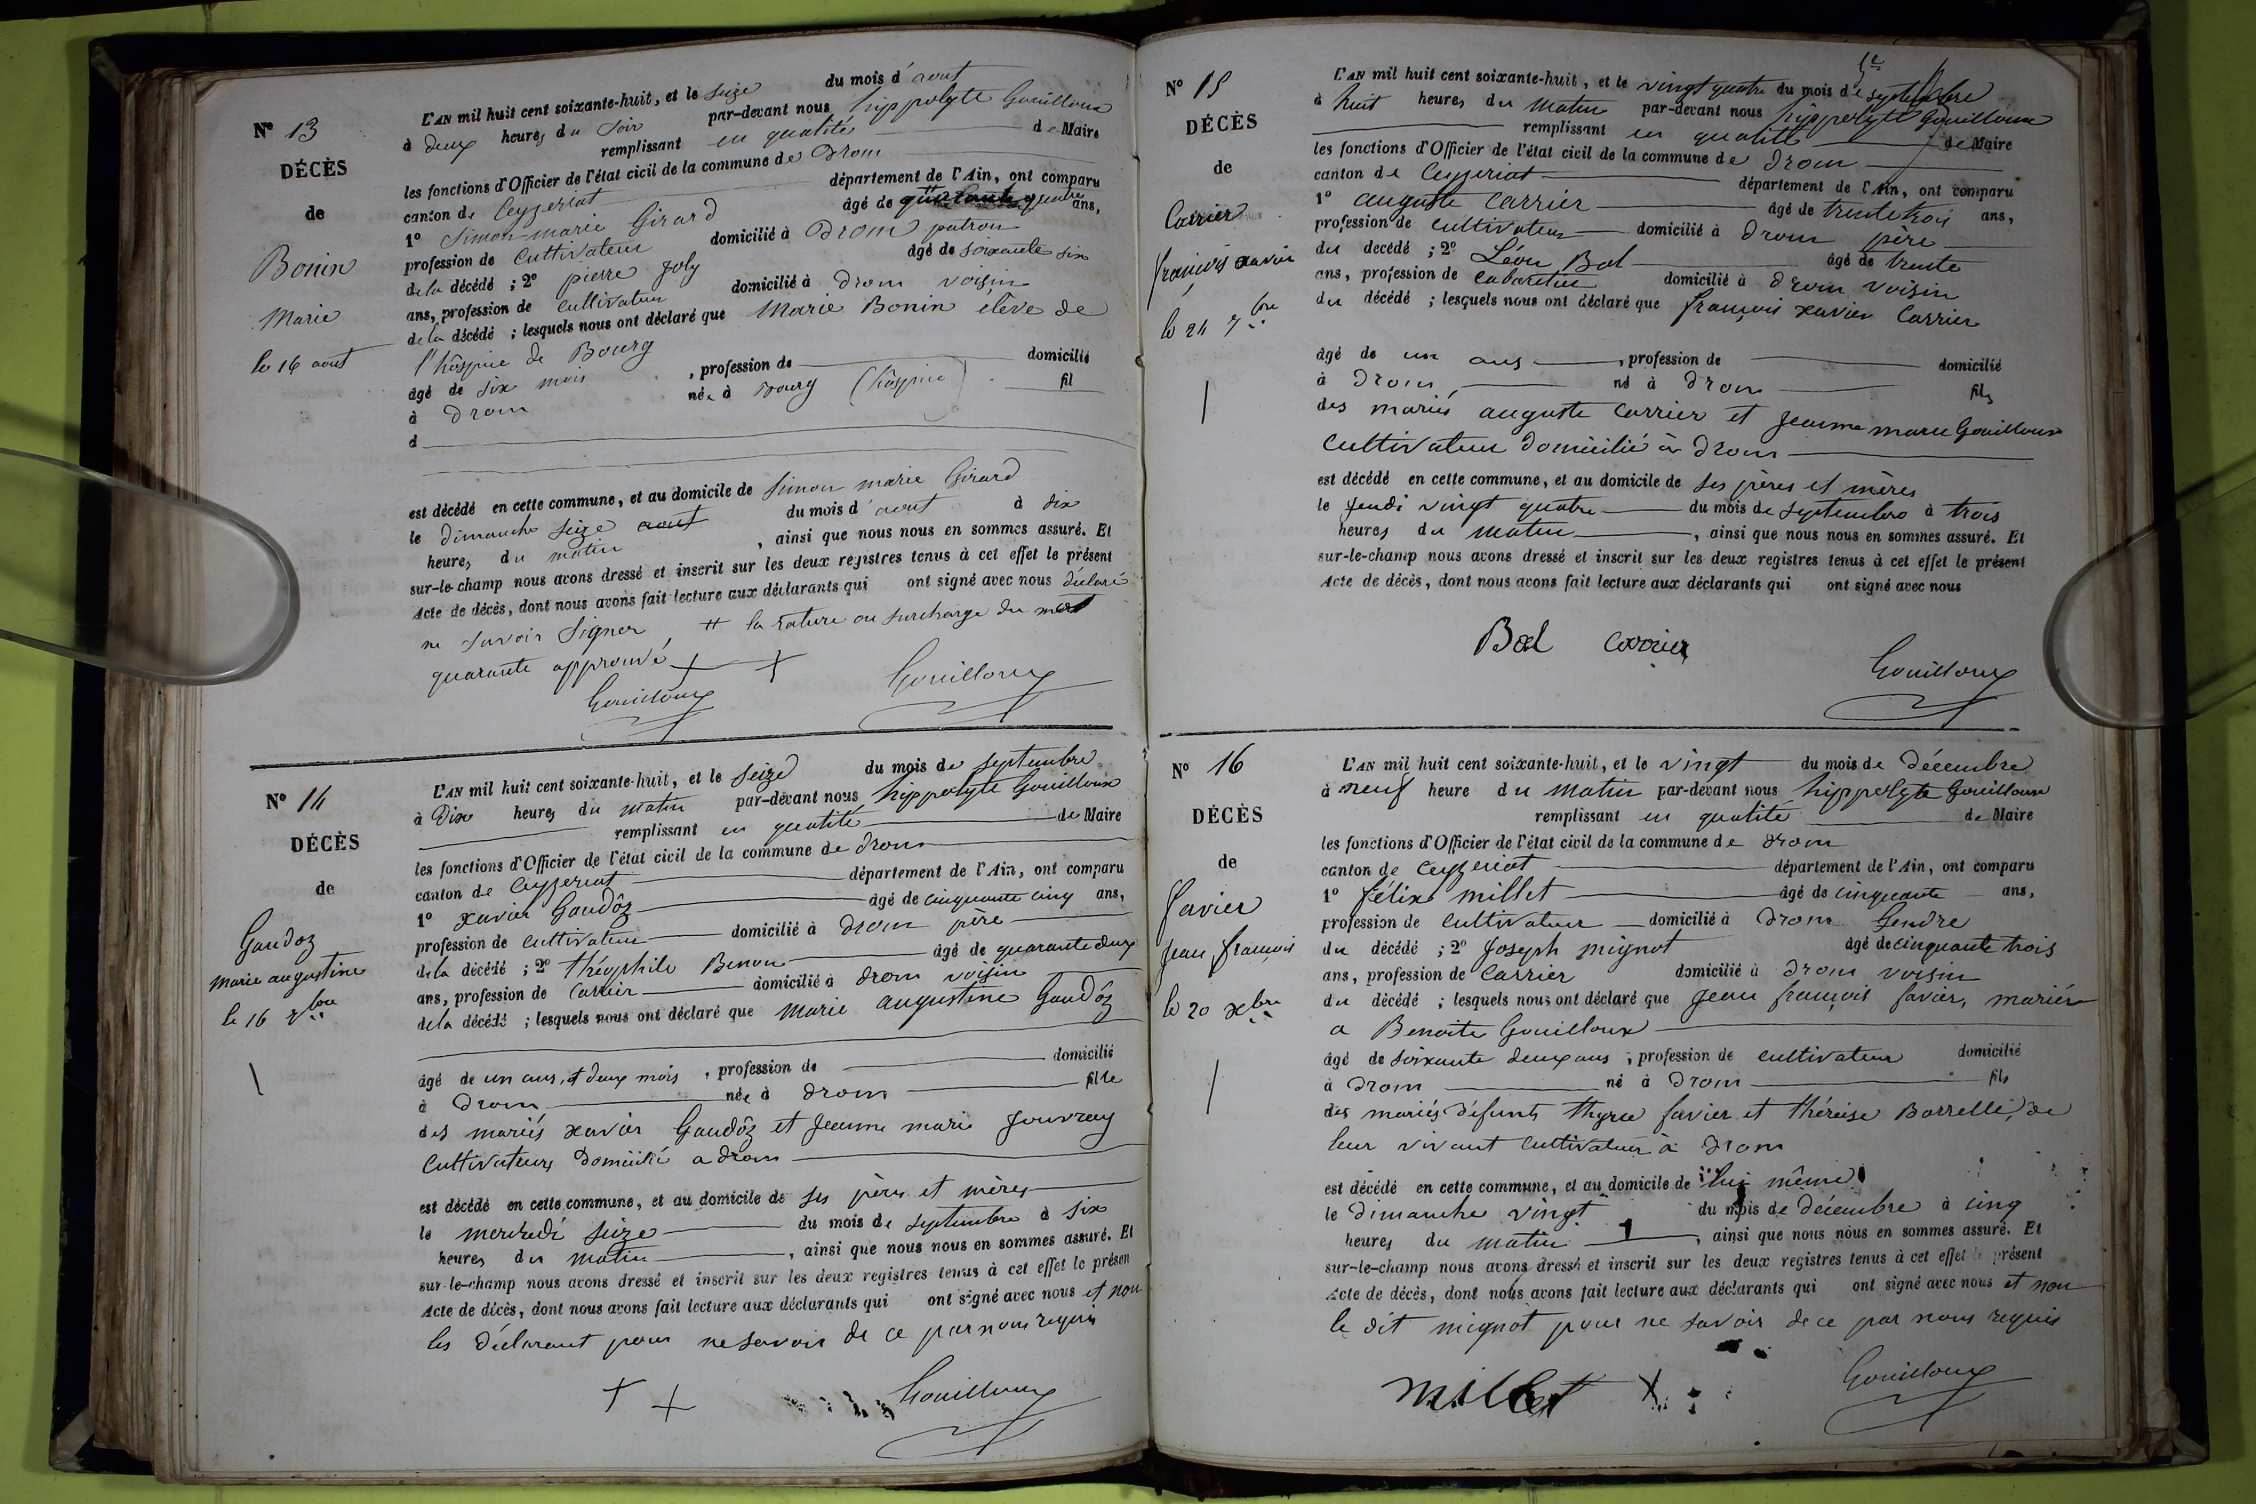 N° 13
DÉCÈS
de
Bonin
Marie
le 16 aout
L'AN mil huit cent soixante-huit, et le seize du mois d'aout
à deux heures du soir par-devant nous hyppolyte Gouilloux
remplissant en qualité de Maire
les fonctions d'Officier de l'état civil de la commune de Drom
canton de Ceyzeriat département de l'Ain, ont comparu
1° Simon-marie Girard âgé de quarante quatre ans,
profession de cultivateur domicilié à Drom patron
de la décédé ; 2° pierre Joly âgé de soixante six
ans, profession de cultivateur domicilié à Drom voisin
de la décédé ; lesquels nous ont déclaré que Marie Bonin élève de
l'hôspice de Bourg
âgé de six mois , profession de domicilié
à Drom née à Bourg (hôspice) fil
d
est décédé en cette commune, et au domicile de Simon marie Girard
le dimanche seize aout du mois d'aout à dix
heures du matin , ainsi que nous nous en sommes assuré. Et
sur-le-champ nous avons dressé et inscrit sur les deux registres tenus à cet effet le présent
Acte de décès, dont nous avons fait lecture aux déclarants qui ont signé avec nous déclaré
ne savoir signer # la rature ou surcharge du mot
quarante approuvé + +
Gouilloux Gouilloux
N° 14
DÉCÈS
de
Gaudoz
marie augustine
le 16 7bre
L'AN mil huit cent soixante-huit, et le seize du mois de septembre
à Dix heures du matin par-devant nous hyppolyte Gouilloux
remplissant en qualité de Maire
les fonctions d'Officier de l'état civil de la commune de Drom
canton de Ceyzeriat département de l'Ain, ont comparu
1° xavier Gaudôz âgé de cinquante cinq ans,
profession de cultivateur domicilié à Drom père
de la décédé ; 2° théophile Benon âgé de quarante deux
ans, profession de carrier domicilié à Drom voisin
de la décédé ; lesquels nous ont déclaré que Marie augustine Gaudôz
âgé de un ans, et deux mois , profession de domicilié
à Drom née à Drom fille
des mariés xavier Gaudôz et Jeanne marie Jouvray
Cultivateurs domicilié a Drom
est décédé en cette commune, et au domicile de ses pères et mères
le mercredi seize du mois de septembre à six
heures du matin , ainsi que nous nous en sommes assuré. Et
sur-le-champ nous avons dressé et inscrit sur les deux registres tenus à cet effet le présen
Acte de décès, dont nous avons fait lecture aux déclarants qui ont signé avec nous et non
les déclarant pour ne savoir de ce par nous requis
+ + Gouilloux
N° 15
DÉCÈS
de
Carrier
françois xavier
le 24 7bre
L'AN mil huit cent soixante-huit, et le vingt quatre du mois de septembre
à huit heures du matin par-devant nous hyppolyte Gouilloux
remplissant en qualité de Maire
les fonctions d'Officier de l'état civil de la commune de Drom
canton de Ceyzeriat département de l'Ain, ont comparu
1° auguste Carrier âgé de trente trois ans,
profession de cultivateur domicilié à Drom père
du décédé ; 2° Léon Bal âgé de trente
ans, profession de cabaretier domicilié à Drom voisin
du décédé ; lesquels nous ont déclaré que françois xavier Carrier
âgé de un ans , profession de domicilié
à Drom né à Drom fils
des mariés auguste Carrier et Jeanne marie Gouilloux
cultivateur domicilié à Drom
est décédé en cette commune, et au domicile de ses pères et mères
le Jeudi vingt quatre du mois de septembre à trois
heures du matin , ainsi que nous nous en sommes assuré. Et
sur-le-champ nous avons dressé et inscrit sur les deux registres tenus à cet effet le présent
Acte de décès, dont nous avons fait lecture aux déclarants qui ont signé avec nous
Bal Carrier
Gouilloux
N° 16
DÉCÈS
de
Favier
Jean françois
le 20 xbre
L'AN mil huit cent soixante-huit, et le vingt du mois de décembre
à neuf heure du matin par-devant nous hippolyte Gouilloux
remplissant en qualité de Maire
les fonctions d'Officier de l'état civil de la commune de Drom
canton de Ceyzeriat département de l'Ain, ont comparu
1° félix millet âgé de cinquante ans,
profession de cultivateur domicilié à Drom Gendre
du décédé ; 2° Joseph mignot âgé de cinquante trois
ans, profession de Carrier domicilié à Drom voisin
du décédé ; lesquels nous ont déclaré que Jean françois favier, mariér
a Benoite Gouilloux
âgé de soixante deux ans , profession de cultivateur domicilié
à Drom né à Drom fils
des mariés défunts favier et thérèse Borrelle, de
leur vivant cultivateur à Drom
est décédé en cette commune, et au domicile de lui même
le dimanche vingt du mois de décembre à cinq
heures du matin , ainsi que nous nous en sommes assuré. Et
sur-le-champ nous avons dressé et inscrit sur les deux registres tenus à cet effet le présent
Acte de décès, dont nous avons fait lecture aux déclarants qui ont signé avec nous et non
le dit mignot pour ne savoir de ce par nous requis
millet + Gouilloux